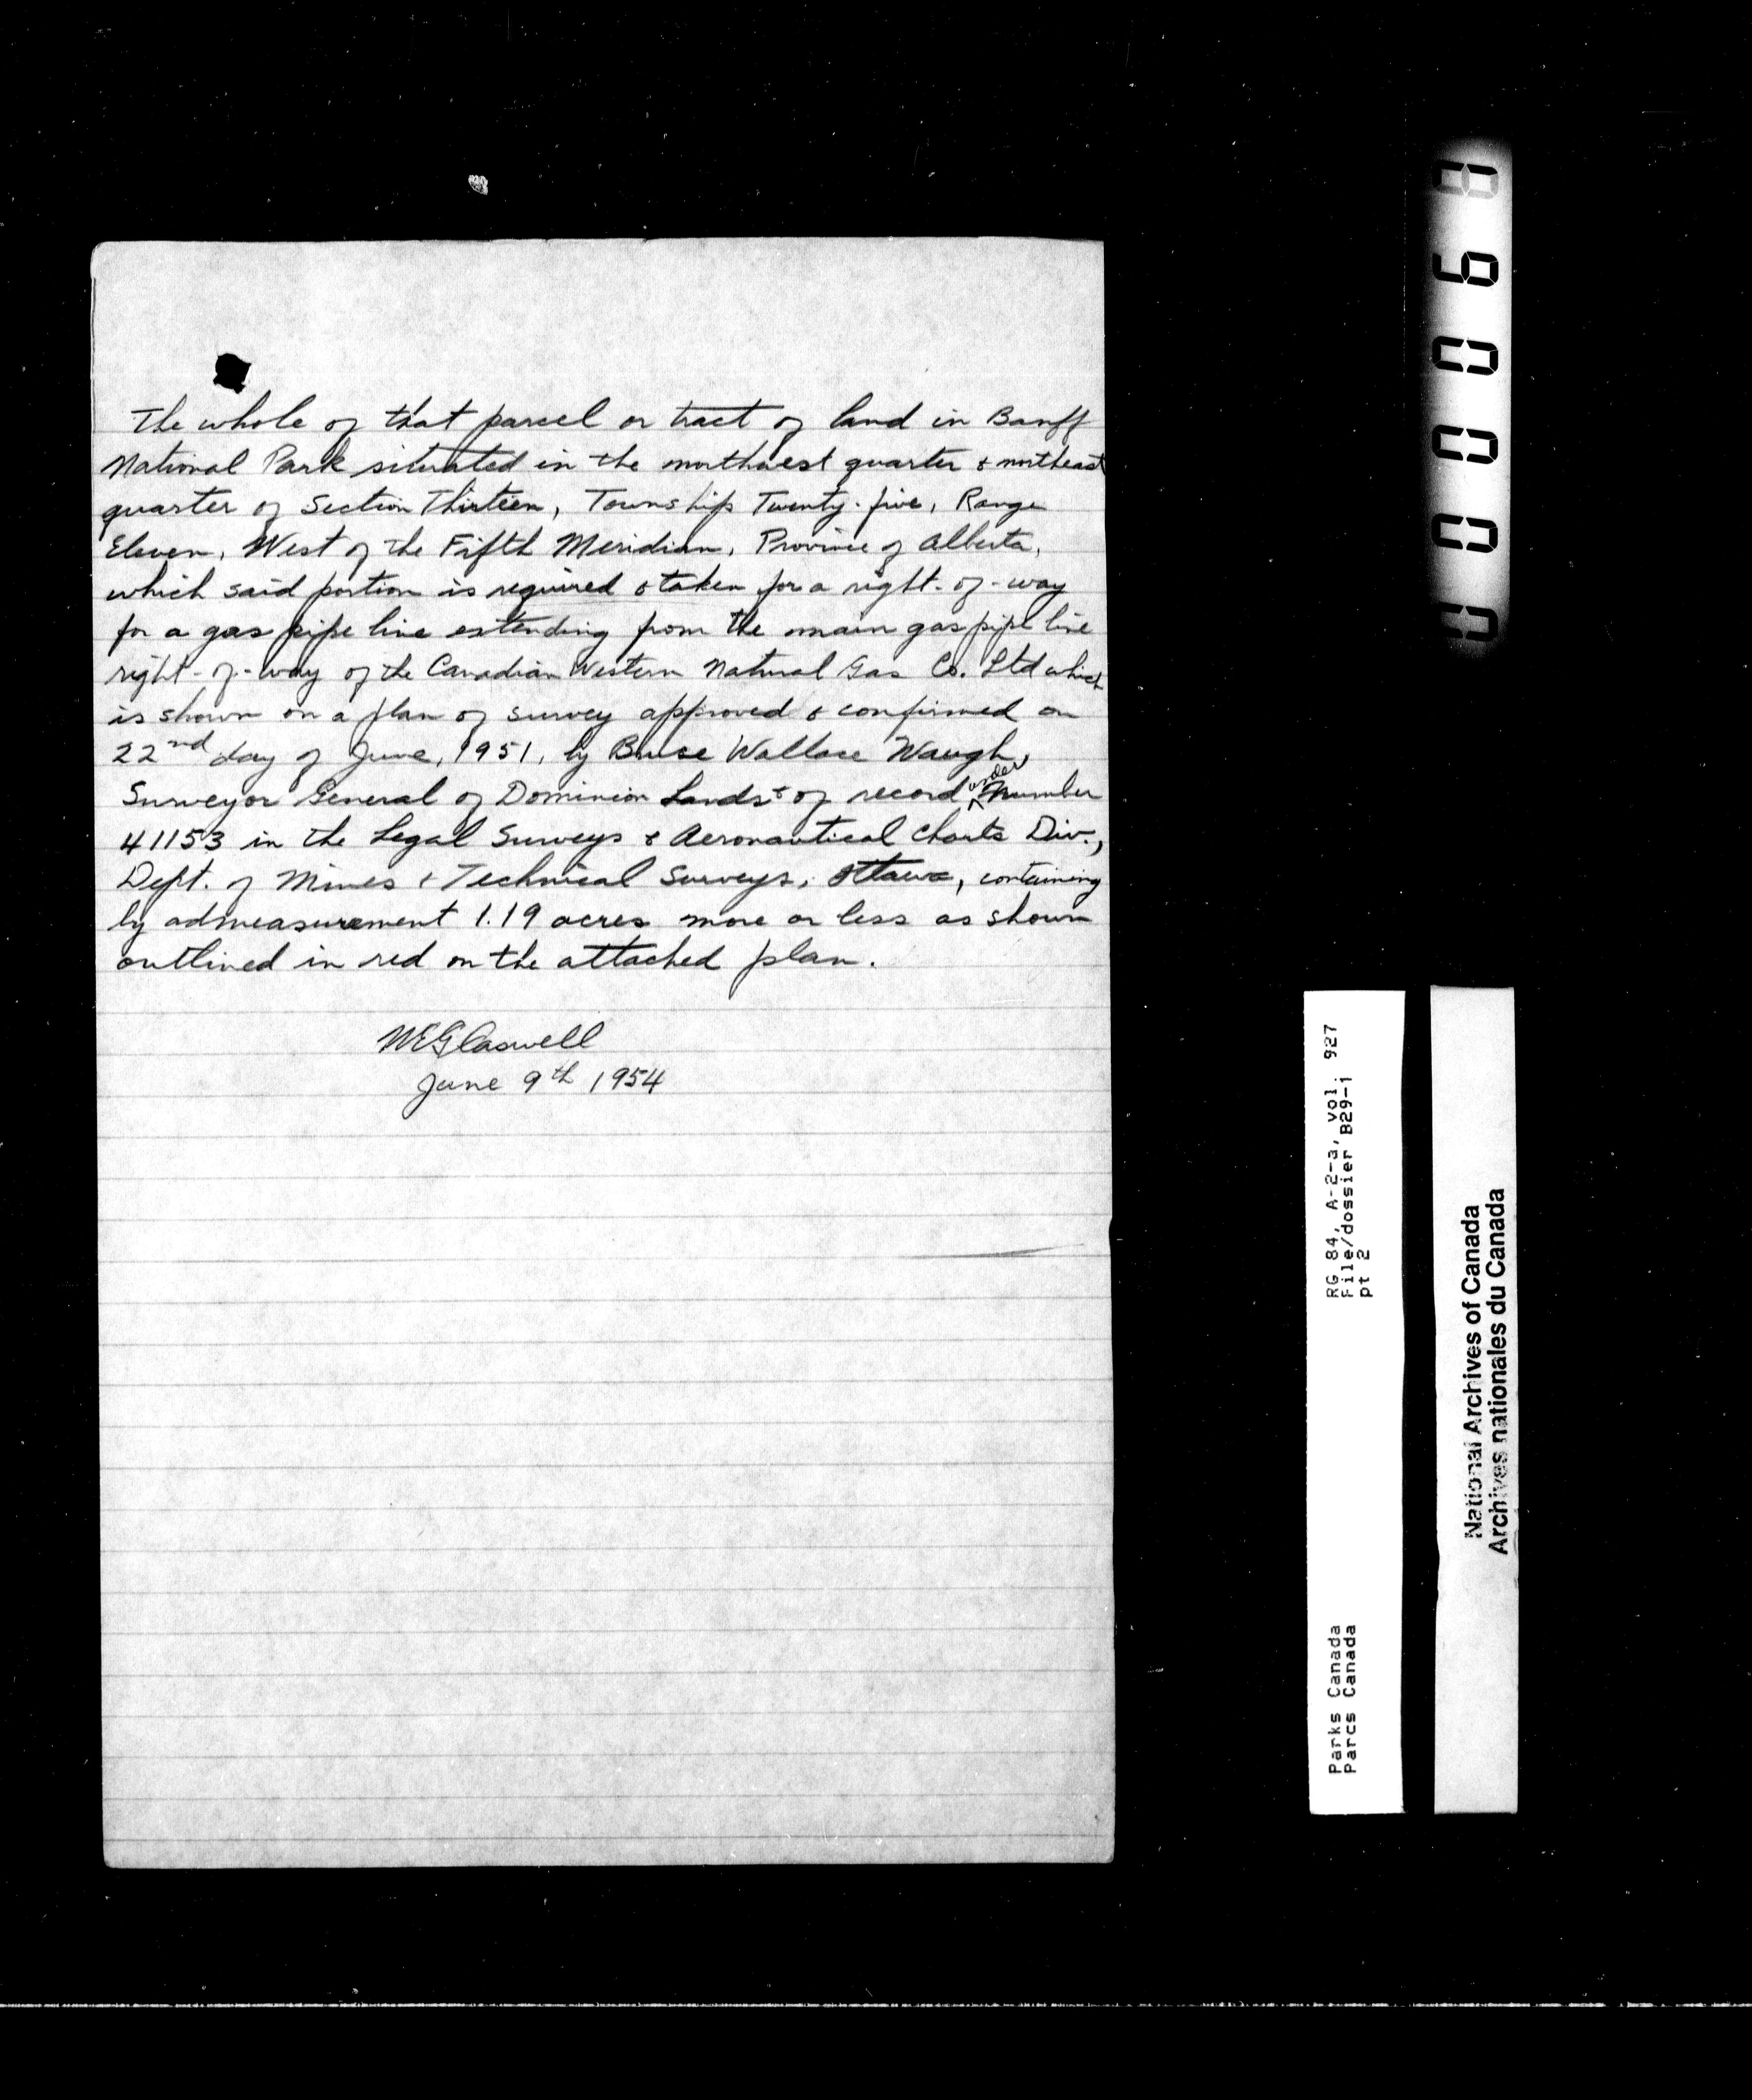 The whole of that parcel or tract of land in Banff
National Park situated in the northwest quarter & northeast
quarter of Section Thirteen, Township Twenty-five, Range
Eleven, West of the Fifth Meridian, Province of Alberta,
which said portion is required & taken for a right-of-way
for a gas pipe line extending from the main gas pipe line
right-of-way of the Canadian Western Natural Gas Co. Ltd which
is shown on a plan of survey approved & confirmed on
22nd day of June, 1951, by Bruce Wallace Waugh,
Surveyor General of Dominion Lands & of record under number
41153 in the Legal Surveys & Aeronautical Charts Div.,
Dept. of Mines & Technical Surveys, Ottawa, containing
by admeasurement 1.19 acres more or less as shown
outlined in red on the attached plan.
WEGlaswell
June 9th 1954
000068
RG 84, A-2-a, vol. 927
File/dossier B29-1
pt 2
Parks Canada
Parcs Canada
National Archives of Canada
Archives nationales du Canada